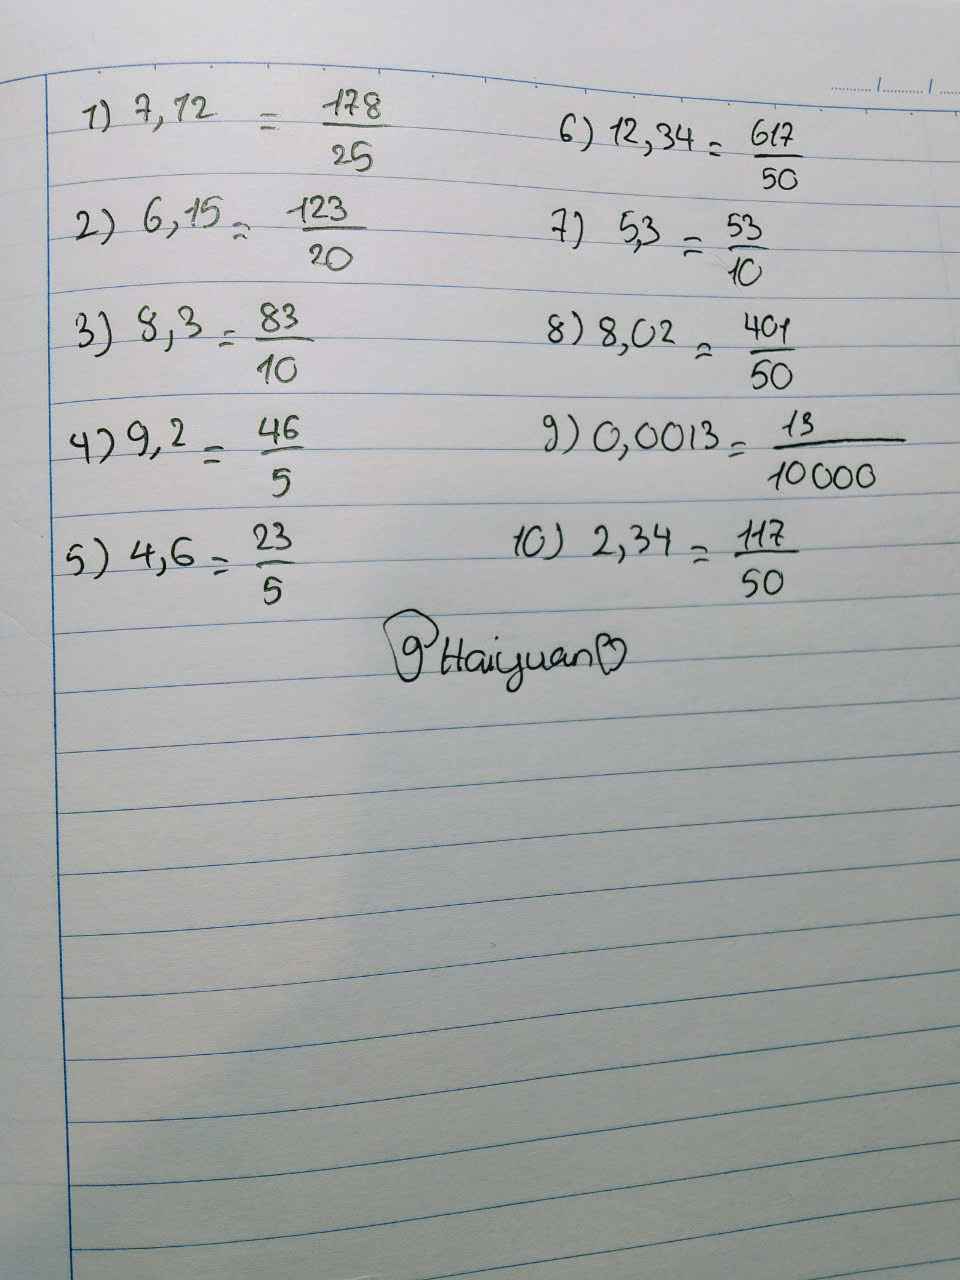 1) 7,12 = 178/25
2) 6,15 = 123/20
3) 8,3 = 83/10
4) 9,2 = 46/5
5) 4,6 = 23/5
6) 12,34 = 617/50
7) 5,3 = 53/10
8) 8,02 = 401/50
9) 0,0013 = 13/10000
10) 2,34 = 117/50
Haiyuan